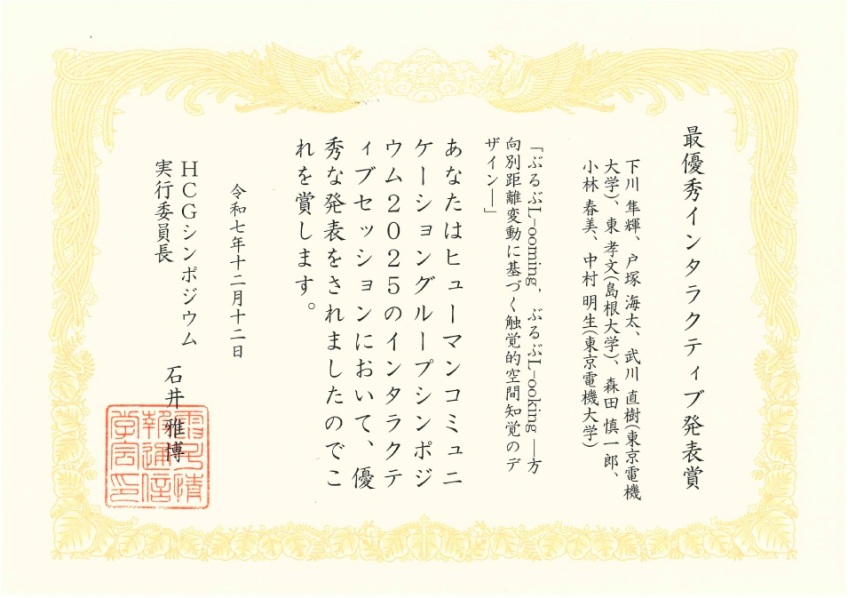 最優秀インタラクティブ発表賞
下川 隼輝、戸塚 海太、武川 直樹(東京電機
大学)、東 孝文(島根大学)、森田 慎一郎、
小林 春美、中村 明生(東京電機大学)
「ぶるぶL-ooming, ぶるぶL-ooking ―方
向別距離変動に基づく触覚的空間知覚のデ
ザイン―」
あなたはヒューマンコミュニ
ケーショングループシンポジ
ウム2025のインタラクテ
ィブセッションにおいて、優
秀な発表をされましたのでこ
れを賞します。
令和七年十二月十二日
HCGシンポジウム
実行委員長 石井 雅博
電子情
報通信
学会印